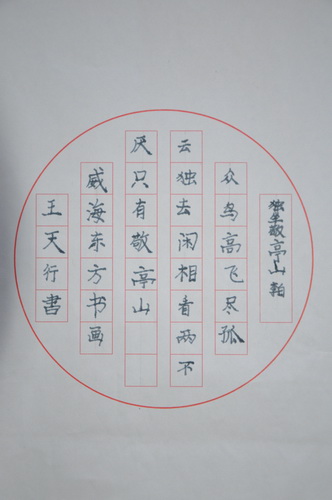 独坐敬亭山
众鸟高飞尽孤
云独去闲相看两不
厌只有敬亭山
威海东方书画
王天行書